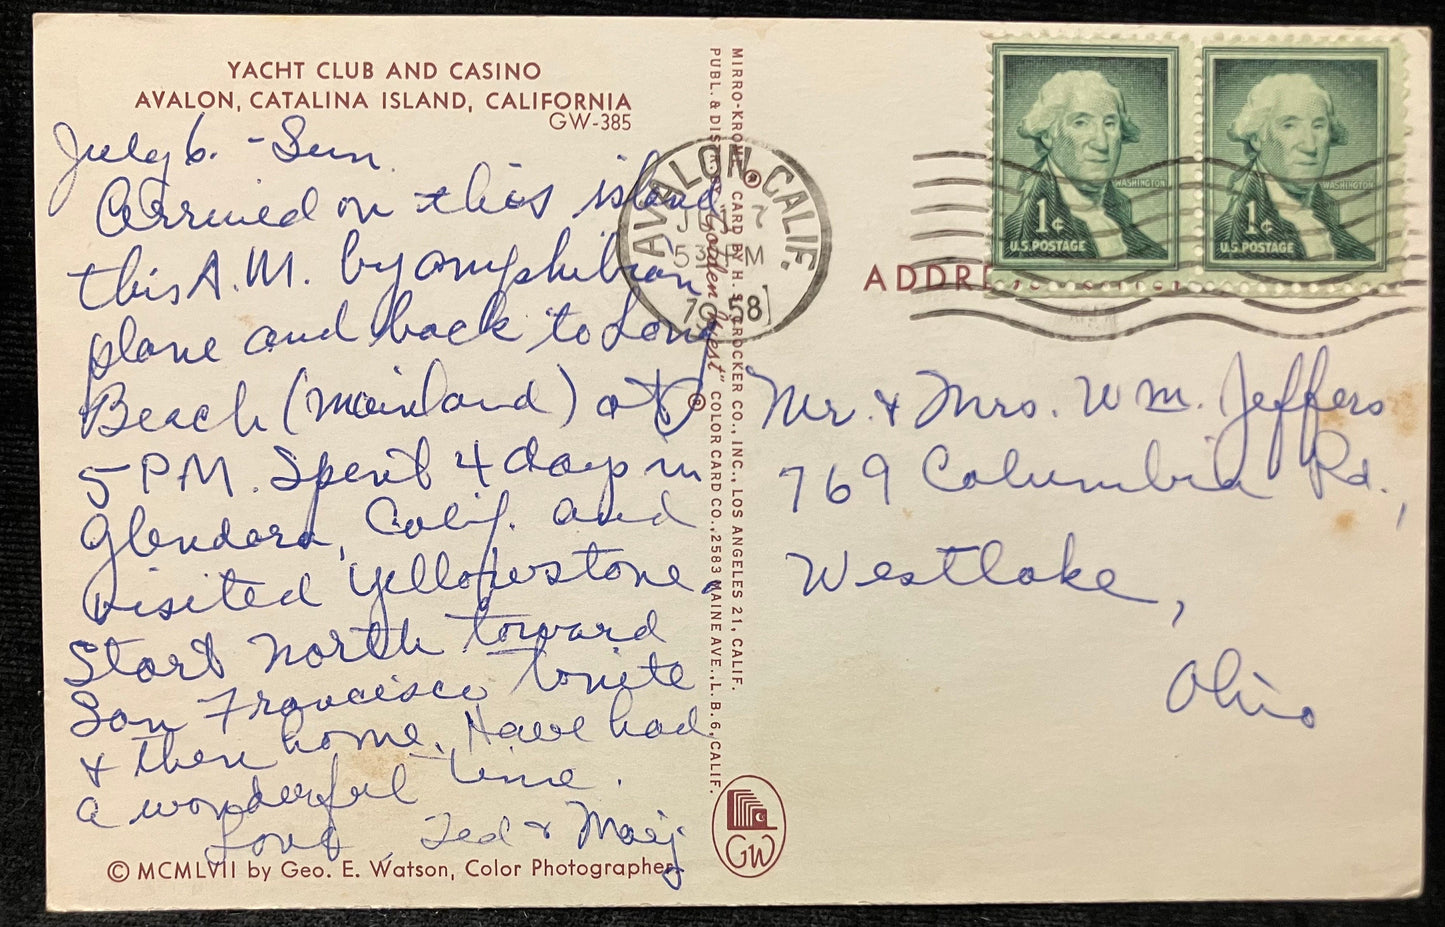 YACHT CLUB AND CASINO
AVALON, CATALINA ISLAND, CALIFORNIA
GW-385
July 6. - Sun
Arrived on this island
this A.M. by amphibian
plane and back to Long
Beach (mainland) at
5 PM. Spent 4 days in
Glendora, Calif. and
visited Yellowstone.
Start North toward
San Francisco tonite
& then home. Have had
a wonderful time.
Love, Ted & Marj
© MCMLVII by Geo. E. Watson, Color Photographer.
MIRRO-KROME ® CARD BY H. S. CROCKER CO., INC., LOS ANGELES 21, CALIF.
PUBL. & DIST. BY "Golden West" ® COLOR CARD CO., 2583 MAINE AVE., L. B. 6, CALIF.
GW
AVALON, CALIF.
JUL 7
530 PM
1958
WASHINGTON
1¢
U.S. POSTAGE
WASHINGTON
1¢
U.S. POSTAGE
Mr. & Mrs. Wm. Jeffers
769 Columbia Rd.,
Westlake,
Ohio